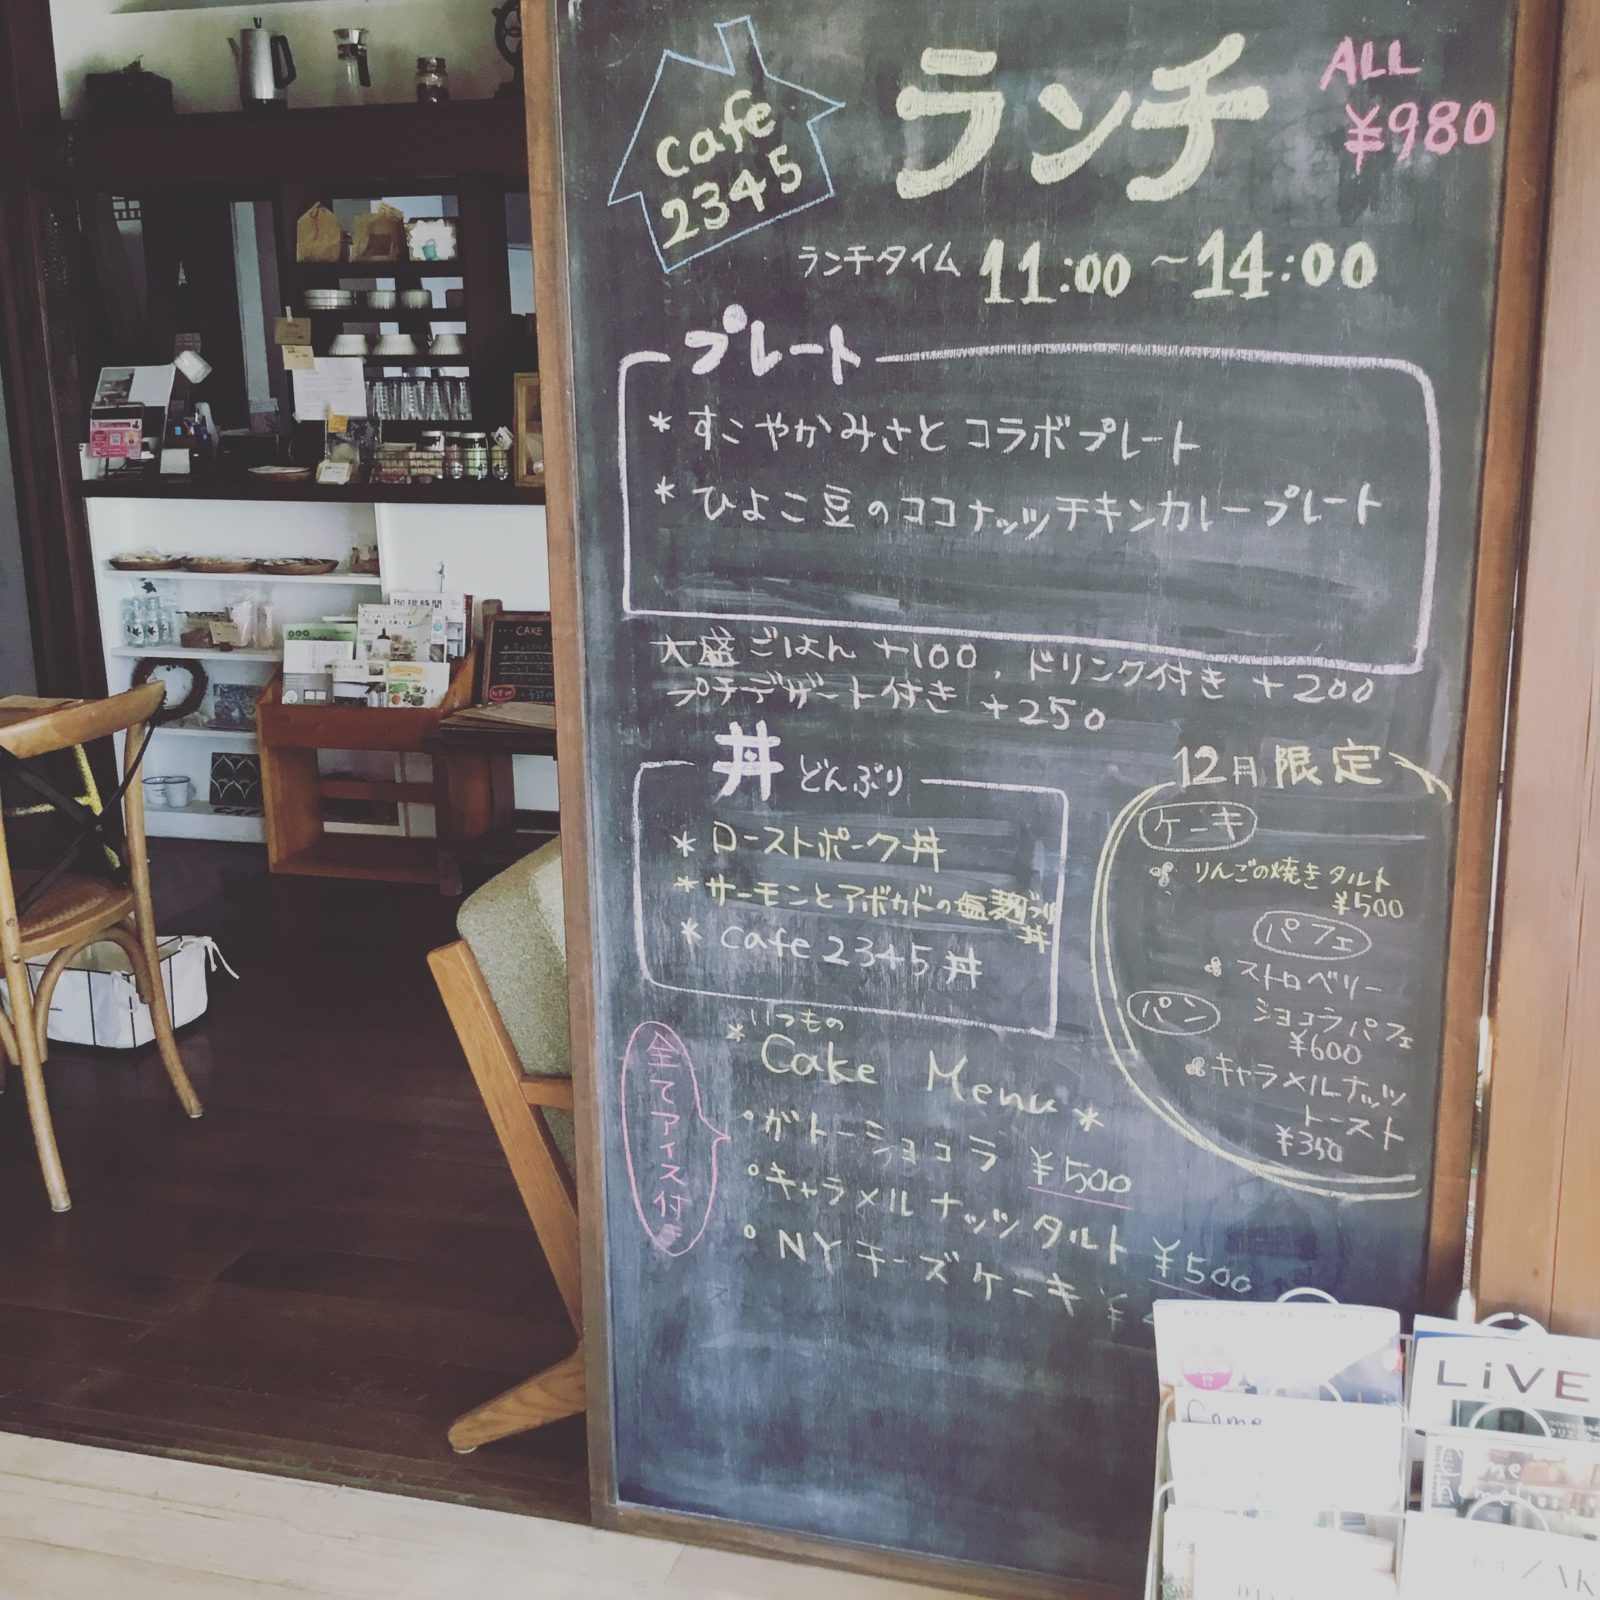 cafe
2345
ランチ
ALL
¥980
ランチタイム 11:00～14:00
プレート
* すこやかみさとコラボプレート
* ひよこ豆のココナッツチキンカレープレート
大盛ごはん +100 、ドリンク付き +200
プチデザート付き +250
丼 どんぶり
* ローストポーク丼
* サーモンとアボカドの塩麹づけ
丼
* cafe 2345 丼
12月限定
ケーキ
りんごの焼きタルト
¥500
パフェ
ストロベリー
ショコラパフェ
¥600
パン
キャラメルナッツ
トースト
¥350
* いつもの
Cake Menu *
全てアイス付
° ガトーショコラ ¥500
° キャラメルナッツタルト ¥500
° NYチーズケーキ ¥
珈琲時間
CAKE
NEW
LiVE